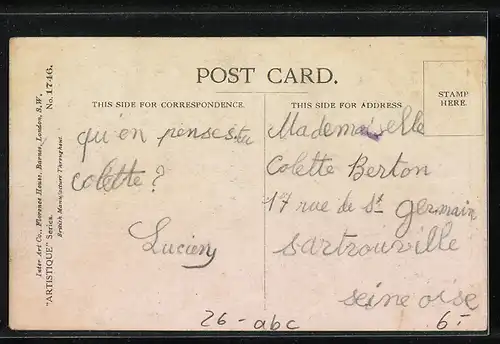 POST CARD.
THIS SIDE FOR CORRESPONDENCE.
THIS SIDE FOR ADDRESS
STAMP
HERE.
Inter Art Co., Florence House, Barnes, London, S.W.
"ARTISTIQUE" Series. No. 1746.
British Manufacture Throughout.
qu'en penses tu
colette?
Lucien
Mademoiselle
Colette Berton
17 rue de St germain
Sartrouville
seine oise
26 - abc
6.-